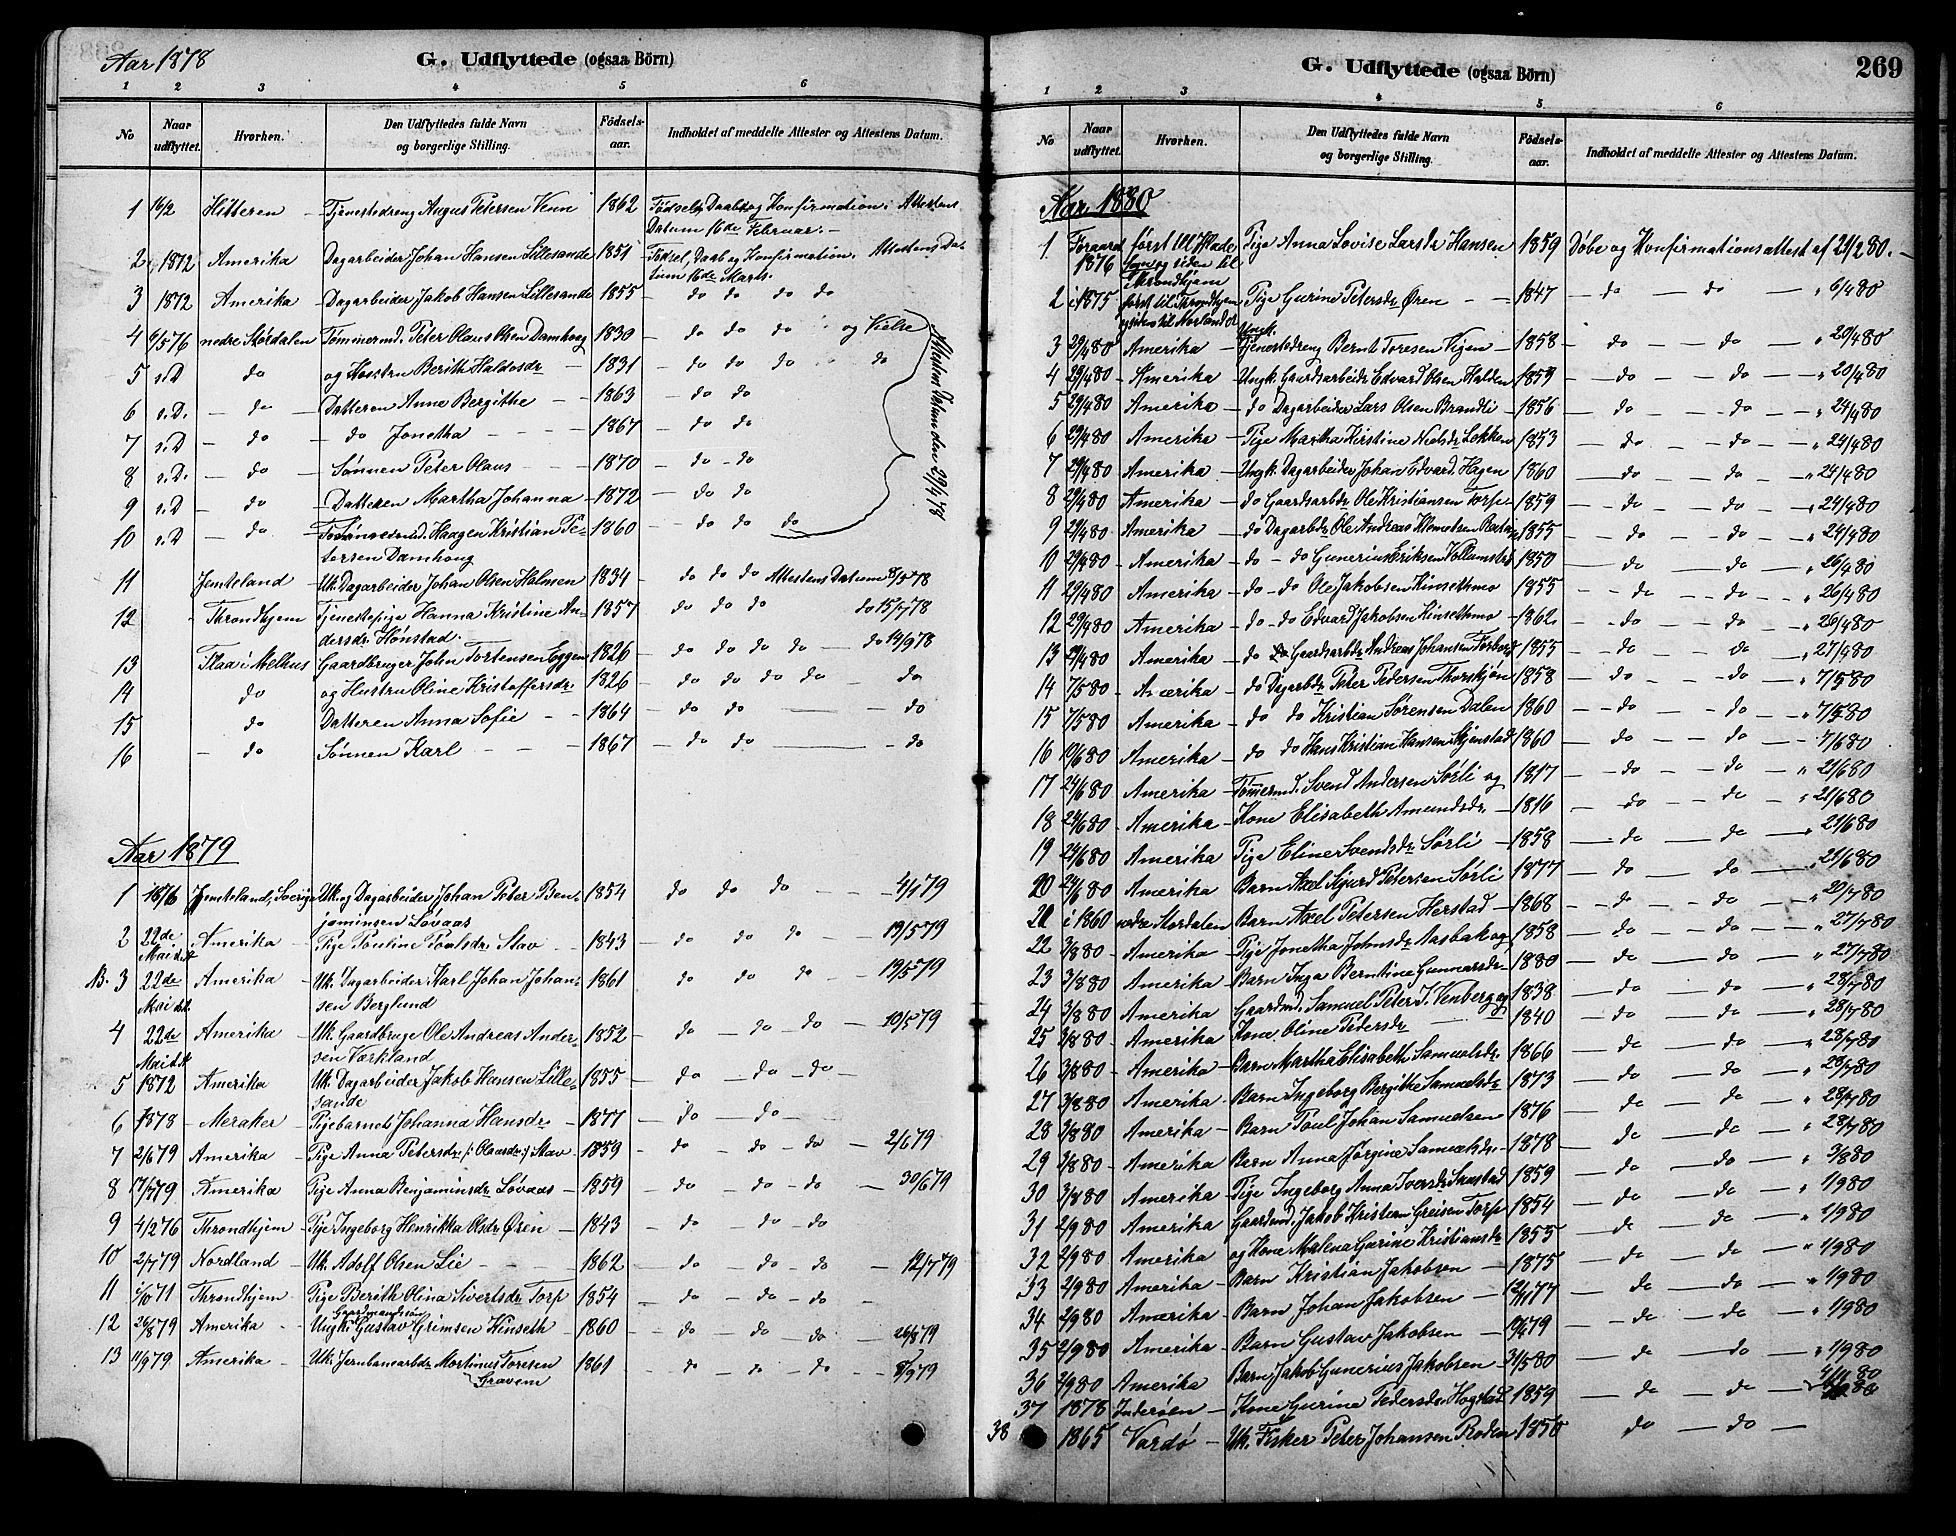 Aar 1878
G. Udflyttede (ogsaa Börn)
1 2 3 4 5 6
No Naar udflyttet. Hvorhen. Den Udflyttedes fulde Navn og borgerlige Stilling. Födsels-aar. Indholdet af meddelte Attester og Attestens Datum.
1 16/2 Hitteren – Tjenestedreng August Petersen Venn 1862 Födsel, Daab og Konfirmation. Attestens
Datum 16de Februar. –
2 1872 Amerika Dagarbeider Johan Hansen Lillesande 1851 Födsel, Daab og Konfirmation. Attestens Da-
tum 16de Marts.
3 1872 Amerika – Dagarbeider Jakob Hansen Lillesande 1855 – do do do do
4 9/5 76 nedre Stördalen Tömmermd. Peter Olaus Olsen Damhoug 1830 – do do do og Vielse
5 s.D do og Hustru Berith Haldosdr – 1831 – do do do do
6 s.D. – do – Datteren Anna Bergithe – – 1863 – do do
7 s.D – do – do Jonetha – – – 1867 – do do
8 s.D. – do – Sönnen Peter Olaus – – – 1870 – do – do
9 s.D – do – Datteren Martha Johanna – 1872 – do do
10 s.D – do – Haagen Kristian Pe- 1860 – do do do
tersen Damhoug
Attestens Datum den 29/4 78
11 Jemteland – Uk. Dagarbeider Johan Olsen Halmen 1834 – do do do Attestens Datum 8/5 78
12 – Throndhjem Tjenestepige Hanna Kristine An- 1857 do do do do 15/7 78
dersdr Hönstad.
13 Flaa i Melhus Gaardbruger John Tortensen Eggen 1826 – do do do do – do 19/9 78
14 do og Hustru Oline Kristoffersdr. 1826 – do do do do – do
15 do Datteren Anna Sofie – – 1864 – do do – do
16 – do Sönnen Karl – – – 1867 – do do – do
Aar 1879
1 16/6 Jemteland, Sverige Uk. Dagarbeider Johan Peter Ben- 1854 do do do – 4/1 79
jaminsen Lövaas
2 22de Mai d.A Amerika – Pige Pauline Paulsdr Stav – 1843 – do do do – 19/5 79
B. 3 22de Mai d.A Amerika – Uk. Dagarbeider Karl Johan Johan- 1861 do do do – 19/5 79
sen Berglund
4 22de Mai d.A Amerika – Uk. Gaardbruge Ole Andreas Ander- 1852 – do – do – do – 10/5 79
sen Værkland
5 1872 Amerika Uk. Dagarbeider Jakob Hansen Lille- 1855 – do – do – do
sande
6 1878 – Meraker – Pigebarnet Johanna Hansdr – 1877 – do – do –
7 2/6 79 Amerika – Pige Anna Petersdr (: Olausdr :) Stav – 1859 – do – do – do – 2/6 79
8 17/7 79 Amerika – Pige Anna Benjaminsdr Lövaas – 1859 – do – do – do – 30/6 79
9 4/2 76 Throndhjem – Pige Ingeborg Henrikka Olsdr Ören – 1843 – do – do – do
10 2/7 79 Nordland – Uk. Adolf Olsen Lie – – – 1862 – do – do – do – 12/7 79
11 1/10 71 Throndhjem Pige Berith Olina Sivertsdr Torp 1854 – do – do – do
12 26/8 79 Amerika – Ungk. Gaardmandssön Gustav Grimsen Kinseth – 1860 – do – do – do – 26/8 79
13 11/9 79 Amerika – Uk. Jernbanearbdr Mortinus Toresen 1861 – do – do – do – 8/9 79
Gravem
G. Udflyttede (ogsaa Börn)
269
1 2 3 4 5 6
No Naar udflyttet. Hvorhen. Den Udflyttedes fulde Navn og borgerlige Stilling. Födsels-aar. Indholdet af meddelte Attester og Attestens Datum.
Aar 1880
1 Foraaret 1876 först til Hlade Sogn og siden til Throndhjem Pige Anna Lovise Larsdr Hansen 1859 Döbe og Konfirmationsattest af 21/2 80. –
2 i 1875 först til Throndhjem og siden til Norland Pige Gurine Petersdr Ören – – 1847 – do – do – " 6/4 80
3 29/4 80 Amerika – Ungk. Tjenestedreng Bernt Toresen Vigen – 1858 – do – do – " 20/4 80
4 29/4 80 – Amerika – Ungk. Gaardsarbeidr Edvard Olsen Halden 1859 – do – do – " 20/4 80
5 29/4 80 Amerika – do Dagarbeider Lars Olsen Brandli – 1856 – do – do – " 24/4 80
6 29/4 80 Amerika – Pige Martha Kirstine Nielsdr Lökken 1853 – do – do – " 24/4 80
7 29/4 80 – Amerika – Ungk. Dagarbeider Johan Edvard Hagen 1860 do – do – " 24/4 80
8 29/4 80 Amerika – do Gaardsarbdr Ole Kristiansen Torp – 1859 – do – do – " 24/4 80
9 29/4 80 Amerika – do Dagarbdr. Ole Andreas Klemetsen 1855 – do – do – " 24/4 80
10 29/4 80 – Amerika – do – do Gunerius Eriksen Vollumstad 1850 – do – do – " 26/4 80
11 29/4 80 Amerika – do – do Ole Jakobsen Kinsethmo 1855 – do – do – " 26/4 80
12 29/4 80 – Amerika – do – do Edvard Jakobsen Kinsethmo – 1862 – do – do – " 26/4 80
13 29/4 80 – Amerika – do Gaardsarbdr Andreas Johansen Forbord 1855 – do – do – " 27/4 80
14 7/5 80 – Amerika – do Dagarbdr Peter Pedersen Thorskjön 1858 – do – do – " 7/5 80
15 7/5 80 – Amerika – do do Kristian Sörensen Dalen 1860 – do – do – " 7/5 80
16 10/6 80 Amerika – do do Hans Kristian Hansen Skjenstad 1860 – do – do – " 7/6 80
17 24/6 80 Amerika – Tömmermd. Svend Andersen Sörli og 1817 – do – do – " 21/6 80
18 24/6 80 – Amerika – Kone Elisabeth Amundsdr – 1816 – do – do – " 21/6 80
19 24/6 80 – Amerika – Pige Eline Svendsdr Sörli – 1858 – do – do – " 21/6 80
20 24/6 80 – Amerika – Barn Axel Sigurd Petersen Sörli 1877 – do – do – " 21/6 80
21 i 1860 nedre Stördalen Barn Axel Petersen Herstad – 1868 – do – do – " 20/7 80
22 3/8 80 – Amerika – Pige Jonetha Johnsdr Aasbak og 1858 – do – do – " 27/7 80
23 3/8 80 Amerika – Barn Inga Berntine Gunnarsdr – 1880 – do – do – " 27/7 80
24 3/8 80 – Amerika – Gaardmd. Samuel Peter J. Venberg og 1838 – do – do – " 28/7 80
25 3/8 80 – Amerika – Kone Oline Pedersdr – 1840 – do – do – " 28/7 80
26 3/8 80 – Amerika – Barn Martha Elisabeth Samuelsdr 1866 – do – do – " 28/7 80
27 3/8 80 Amerika – Barn Ingeborg Bergitte Samuelsdr 1873 – do – do – " 28/7 80
28 3/8 80 Amerika – Barn Paul Johan Samuelsen 1876 – do – do – " 28/7 80
29 3/8 80 – Amerika – Barn Anna Jörgine Samuelsdr – 1878 – do – do – " 28/7 80
30 3/8 80 – Amerika – Pige Ingeborg Anna Iversdr 1859 – do – do – " 3/8 80
31 2/9 80 – Amerika – Gaardmd. Jakob Kristian Greisen Torp 1854 – do – do – " 1/9 80
32 2/9 80 – Amerika – og Kone Malena Gurine Kristiansdr 1855 – do – do – " 1/9 80
33 2/9 80 – Amerika – Barn Kristian Jakobsen – 1875 – do – do – " 1/9 80
34 2/9 80 – Amerika – Barn Johan Jakobsen – 12/11 77 – do – do – " 1/9 80
35 2/9 80 – Amerika – Barn Gustav Jakobsen – 79 – do – do – " 1/9 80
36 2/9 80 Amerika Barn Jakob Gunerius Jakobsen – 31/5 80 – do – do – " 1/9 80
37 1878 Inderöen – Kone Gurina Pedersdr Hogstad 1859 – do – do – 4/11 80
38 1865 Vardö – Uk. Fisker Peter Johansen Roden 1850 do – do –